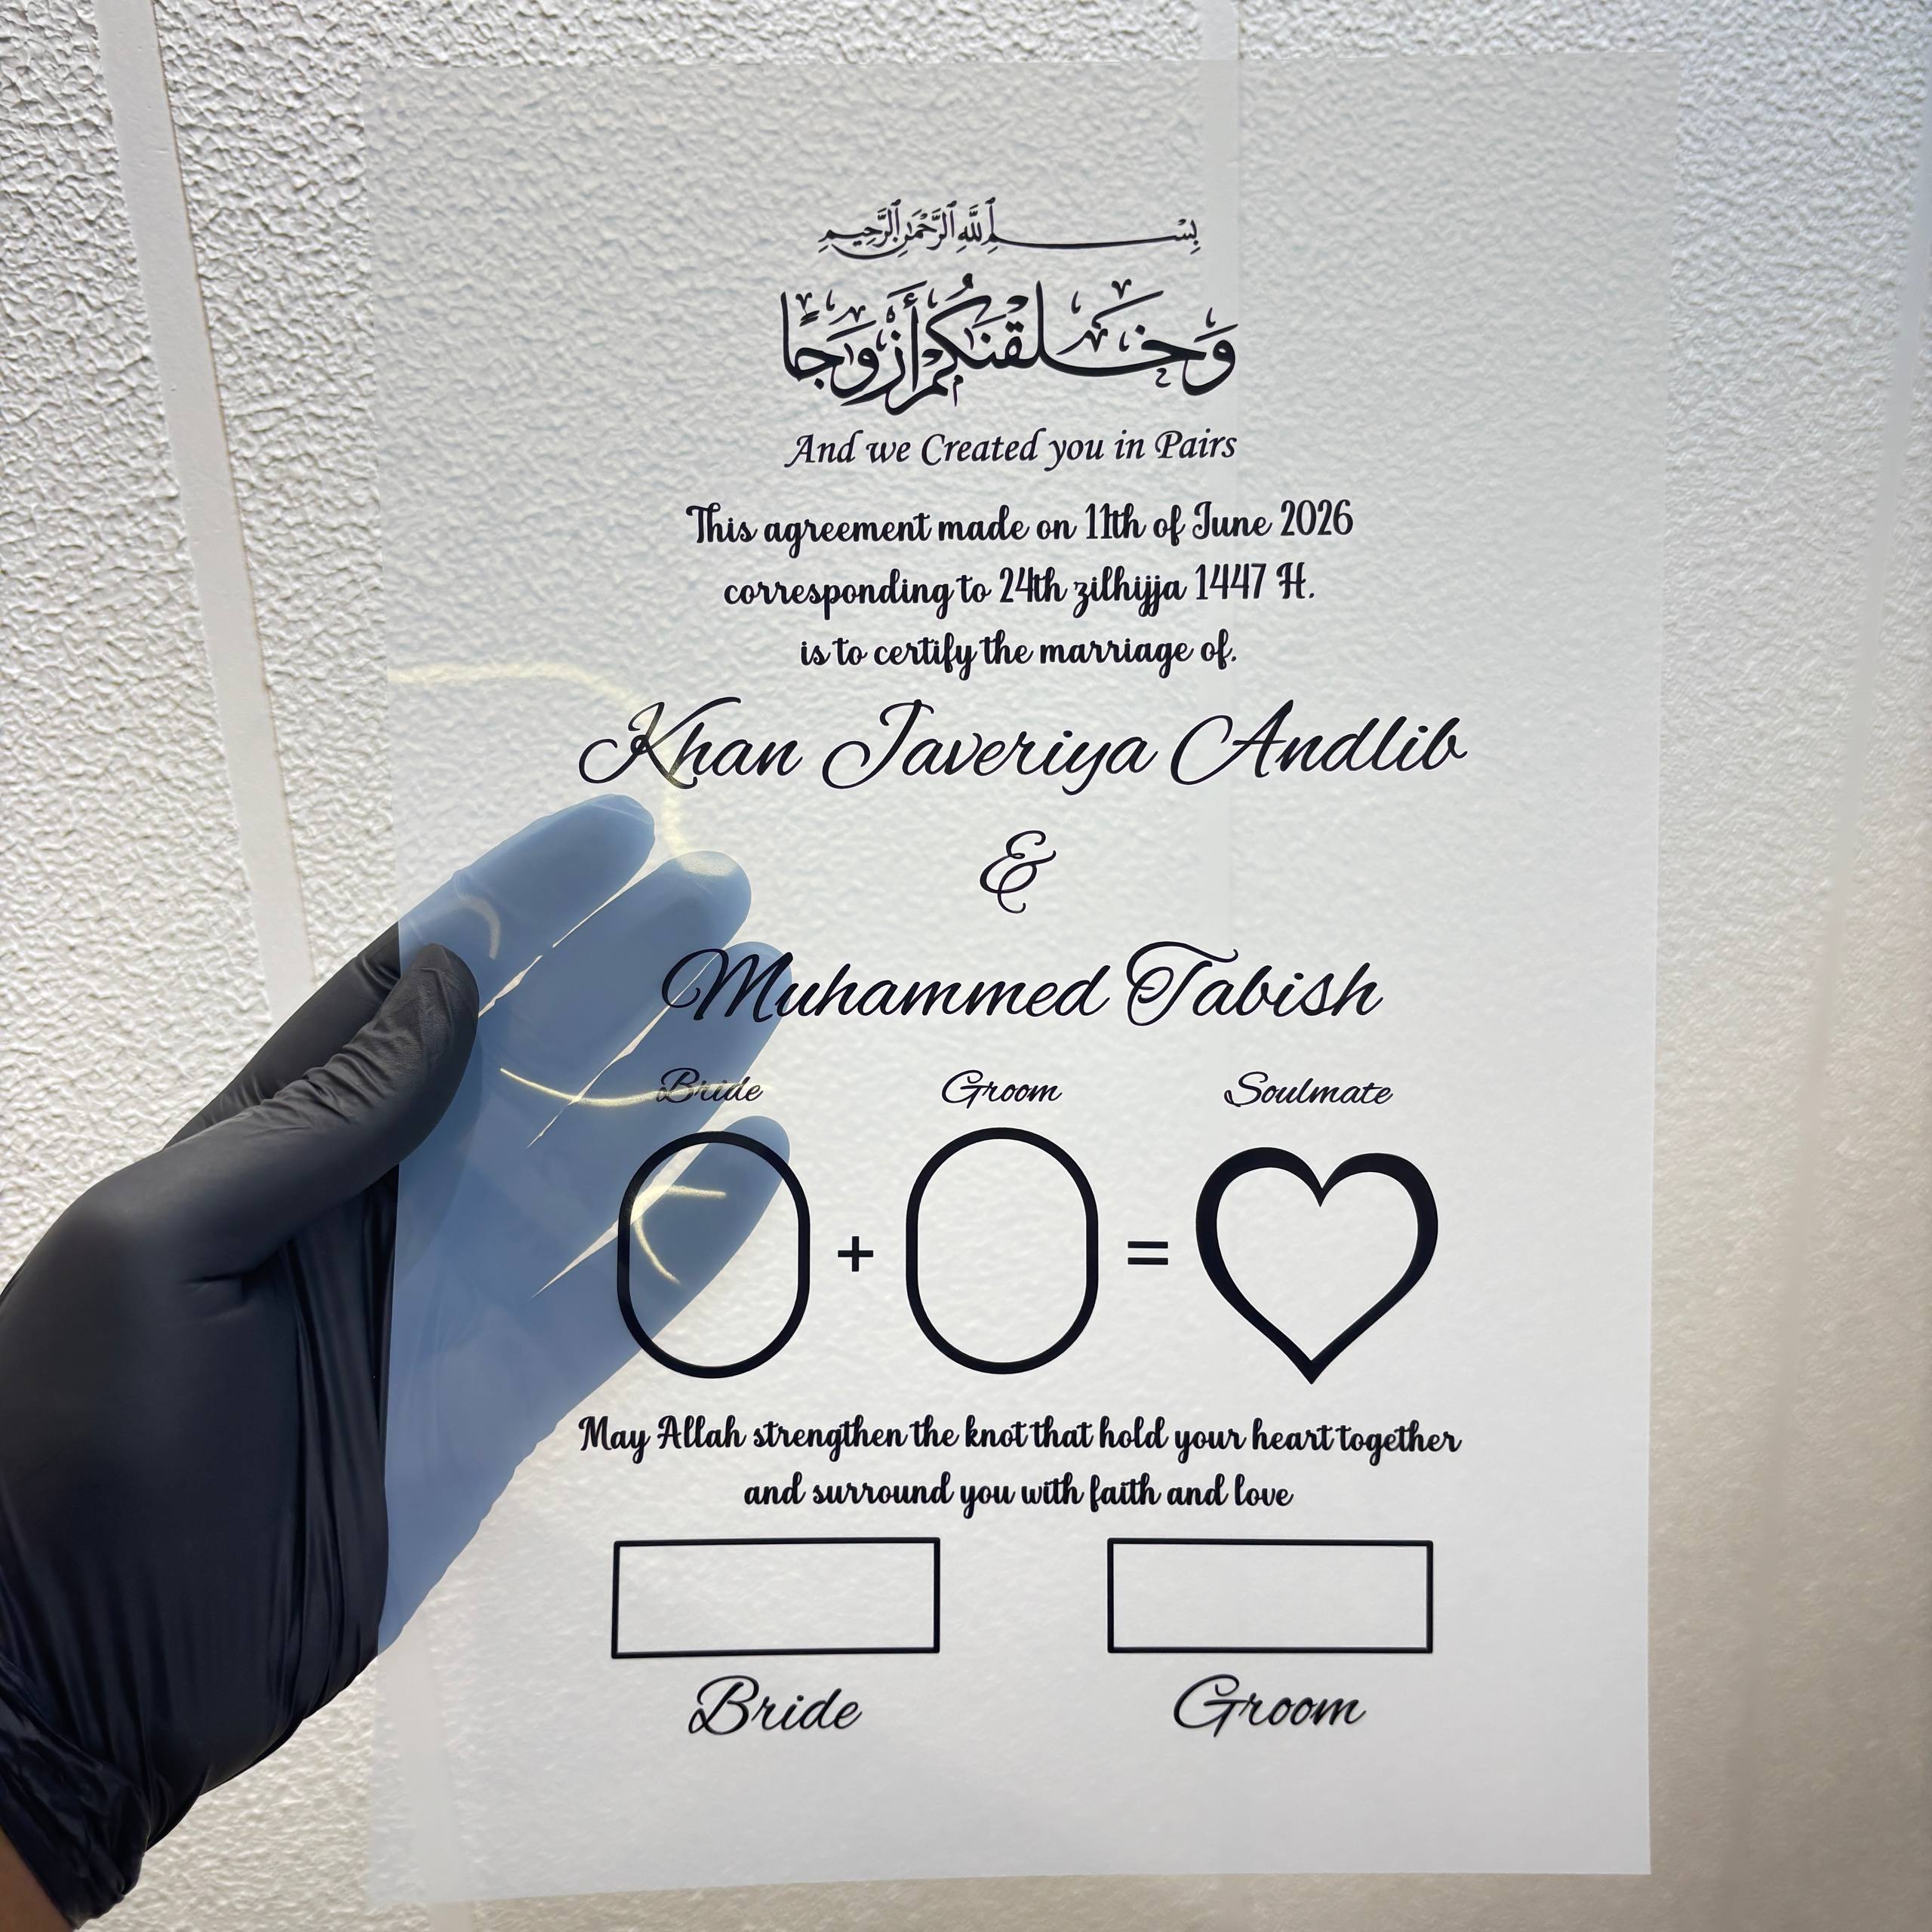 بِسْمِ اللَّهِ الرَّحْمَٰنِ الرَّحِيمِ
وَخَلَقْنَكُمْ أَزْوَجًا
And we Created you in Pairs
This agreement made on 11th of June 2026
corresponding to 24th zilhijja 1447 H.
is to certify the marriage of.
Khan Javeriya Andlib
&
Muhammed Tabish
Bride Groom Soulmate
+ =
May Allah strengthen the knot that hold your heart together
and surround you with faith and love
Bride Groom